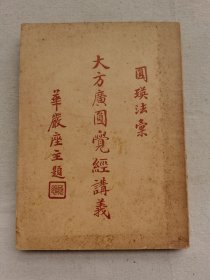 圓瑛法彙
大方廣圓覺經講義
華嚴座主題